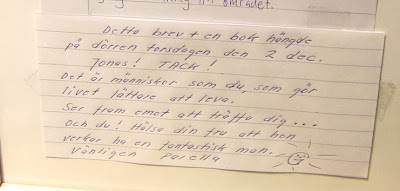 området.
Detta brev + en bok hängde
på dörren torsdagen den 2 dec.
Jonas! TACK!
Det är människor som du, som gör
livet lättare att leva.
Ser fram emot att träffa dig...
Och du! Hälsa din fru att hon
verkar ha en fantastisk man.
Vänligen Parella